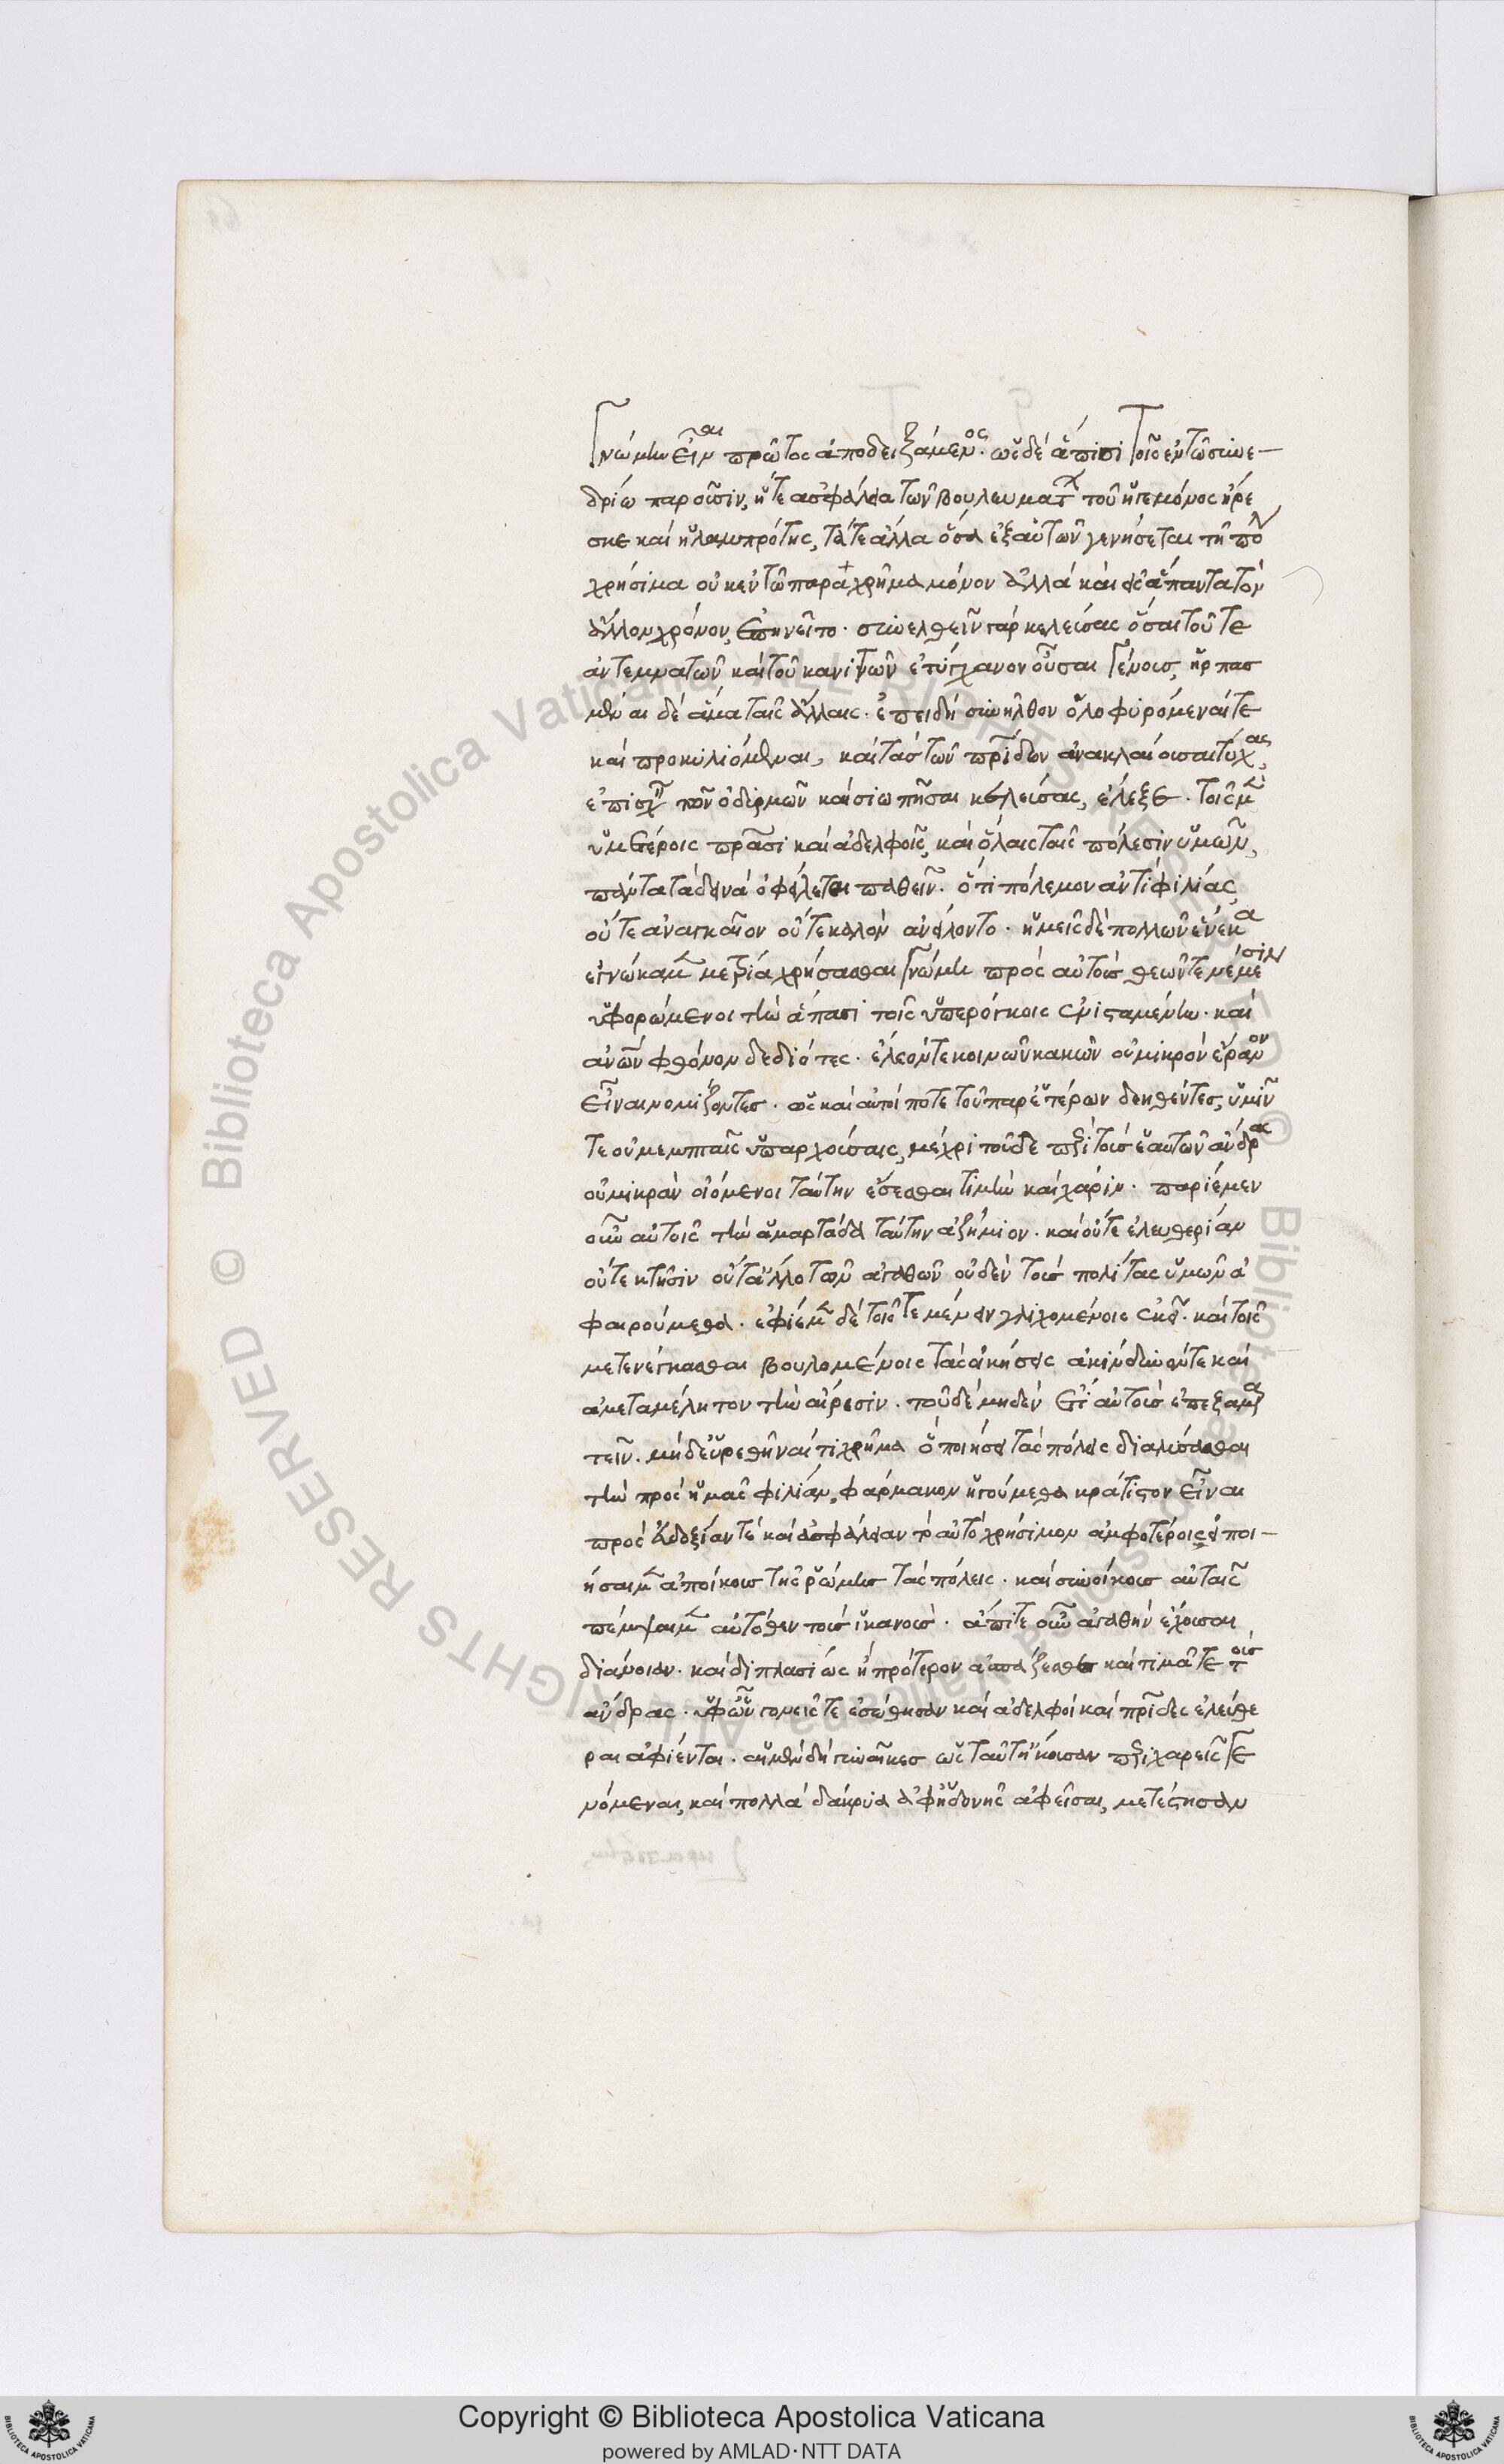 γνώμην εἶναι πρῶτος ἀποδειξάμενος. ὡς δὲ ἅπασι τοῖς ἐν τῷ συνε-
δρίω παροῦσιν, ἥ τε ἀσφάλεια τῶν βουλευμάτων τοῦ ἡγεμόνος ἤρε
σκε καὶ ἡ λαμπρότης, τά τε ἄλλα ὅσα ἐξ αὐτῶν γενήσεται τῇ πόλει
χρήσιμα οὐκ ἐν τῷ παραχρῆμα μόνον ἀλλὰ καὶ εἰς ἅπαντα τὸν
ἄλλον χρόνον, ἐπηνεῖτο. συνελθεῖν γὰρ κελεύσας ὅσαι τοῦ τε
ἀντεμνατῶν καὶ τοῦ κανιτῶν ἐτύγχανον οὖσαι γένους, ἡρπασ
μέναι δὲ ἅμα ταῖς ἄλλαις. ἐπειδὴ συνῆλθον ὀλοφυρόμεναί τε
καὶ προκυλιόμεναι, καὶ τὰς τῶν πατρίδων ἀνακλαίουσαι τύχας,
ἐπισχεῖν τῶν ὀδυρμῶν καὶ σιωπῆσαι κελεύσας, ἔλεξε. τοῖς μὲν
ὑμετέροις πατράσι καὶ ἀδελφοῖς, καὶ ὅλαις ταῖς πόλεσιν ὑμῶν,
πάντα τὰ δεινὰ ὀφείλεται παθεῖν. ὅτι πόλεμον ἀντὶ φιλίας
οὔτε ἀναγκαῖον οὔτε καλὸν ἀνείλοντο. ἡμεῖς δὲ πολλῶν ἕνεκα
ἐγνώκαμεν μετρία χρήσασθαι γνώμη πρὸς αὐτοὺς θεῶν τε νέμεσιν
ὑφορώμενοι τὴν ἅπασι τοῖς ὑπερόγκοις ἐνισταμένην. καὶ
ἀνθρώπων φθόνον δεδιότες. ἔλεόν τε κοινῶν κακῶν οὐ μικρὸν ἔρανον
εἶναι νομίζοντες. ὡς καὶ αὐτοί ποτε τοῦ παρ' ἑτέρων δεηθέντες, ὑμῖν
τε οὐ μεμπταῖς ὑπαρχούσαις, μέχρι τοῦδε περὶ τοὺς ἑαυτῶν ἄνδρας
οὐ μικρὰν οἰόμενοι ταύτην ἔσεσθαι τιμὴν καὶ χάριν. παρίεμεν
οὖν αὐτοῖς τὴν ἁμαρτάδα ταύτην ἀζήμιον. καὶ οὔτε ἐλευθερίαν
οὔτε κτῆσιν οὔτ' ἄλλο τῶν ἀγαθῶν οὐδὲν τοὺς πολίτας ὑμῶν ἀ
φαιρούμεθα. ἐφίεμεν δὲ τοῖς τε μένειν γλιχομένοις ἐκεῖ. καὶ τοῖς
μετενέγκασθαι βουλομένοις τὰς οἰκήσεις ἀκίνδυνόν τε καὶ
ἀμεταμέλητον τὴν αἵρεσιν. τοῦ δὲ μηδὲν ἔτι αὐτοὺς ἐπεξαμαρ
τεῖν. μηδ' εὑρεθῆναί τι χρῆμα ὃ ποιήσει τὰς πόλεις διαλύσασθαι
τὴν πρὸς ἡμᾶς φιλίαν, φάρμακον ἡγούμεθα κράτιστον εἶναι
πρὸς εὐδοξίαν τε καὶ ἀσφάλειαν τὸ αὐτὸ χρήσιμον ἀμφοτέροις, εἰ ποι-
ήσαιμεν ἀποίκους τῆς ῥώμης τὰς πόλεις. καὶ συνοίκους αὐταῖς
πέμψαιμεν αὐτόθεν τοὺς ἱκανούς. ἄπιτε οὖν ἀγαθὴν ἔχουσαι
διάνοιαν. καὶ διπλασίως ἢ πρότερον ἀσπάζεσθε καὶ τιμᾶτε τοὺς
ἄνδρας. ὑφ' ὧν γονεῖς τε ἐσώθησαν καὶ ἀδελφοὶ καὶ πατρίδες ἐλεύθε
ραι ἀφίενται. αἱ μὲν δὴ γυναῖκες ὡς ταῦτ' ἤκουσαν περιχαρεῖς γε
νόμεναι, καὶ πολλὰ δάκρυα ἀφ' ἡδονῆς ἀφεῖσαι, μετέστησαν
Copyright © Biblioteca Apostolica Vaticana
powered by AMLAD·NTT DATA